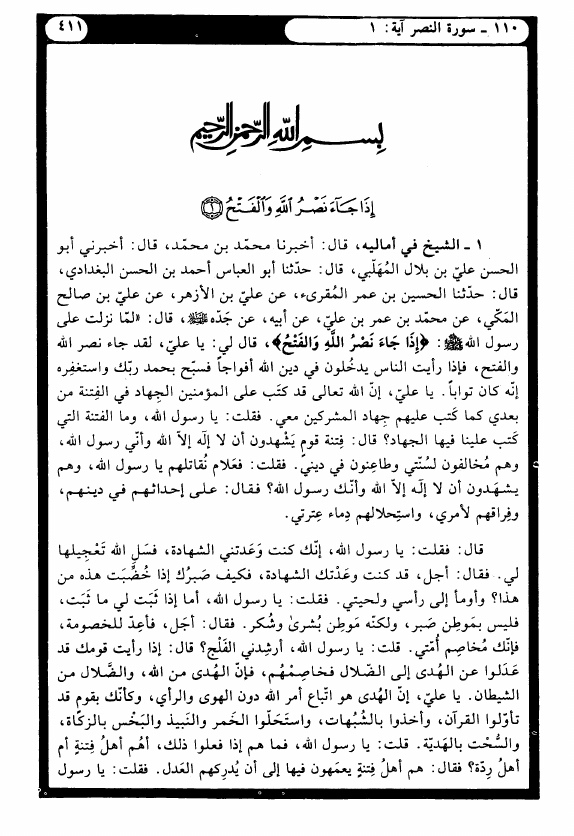 ١١٠ ـ سورة النصر آية: ١
٤١١
بِسْمِ اللَّهِ الرَّحْمَنِ الرَّحِيمِ
إِذَا جَاءَ نَصْرُ اللَّهِ وَالْفَتْحُ ١
١ ـ الشيخ في أماليه، قال: أخبرنا محمّد بن محمّد، قال: أخبرني أبو
الحسن عليّ بن بلال المُهَلّبي، قال: حدّثنا أبو العباس أحمد بن الحسن البغدادي،
قال: حدّثنا الحسين بن عمر المُقرىء، عن عليّ بن الأزهر، عن عليّ بن صالح
المَكّي، عن محمّد بن عمر بن عليّ، عن أبيه، عن جَدّه ﷺ، قال: «لمّا نزلت على
رسول الله ﷺ: ﴿إِذَا جَاءَ نَصْرُ اللَّهِ وَالفَتْحُ﴾، قال لي: يا عليّ، لقد جاء نصر الله
والفتح، فإذا رأيت الناس يدخُلون في دين الله أفواجاً فسبّح بحمد ربّك واستغفِره
إنّه كان تواباً. يا عليّ، إنّ الله تعالى قد كتَب على المؤمنين الجِهاد في الفِتنة من
بعدي كما كتَب عليهم جِهاد المشركين معي. فقلت: يا رسول الله، وما الفتنة التي
كتَب علينا فيها الجهاد؟ قال: فِتنة قومٍ يَشْهدون أن لا إلَه إلاّ الله وأنّي رسول الله،
وهم مُخالفون لسُنّتي وطاعِنون في ديني. فقلت: فعَلام نُقاتلهم يا رسول الله، وهم
يشهَدون أن لا إلَه إلاّ الله وأنّك رسول الله؟ فقال: على إحداثهم في دينهم،
وفِراقهم لأمري، واستِحلالهم دِماء عِترتي.
قال: فقلت: يا رسول الله، إنّك كنت وَعَدتني الشهادة، فسَلِ الله تَعْجيلها
لي. فقال: أجل، قد كنت وعَدْتك الشهادة، فكيف صَبرُك إذا خُضِّبَت هذه من
هذا؟ وأومأ إلى رأسي ولحيتي. فقلت: يا رسول الله، أما إذا ثبَت لي ما ثبَت،
فليس بمَوطِن صَبر، ولكنّه مَوطِن بُشرىٰ وشُكر. فقال: أجَل، فأعِدّ للخصومة،
فإنّك مُخاصِم أُمّتي. قلت: يا رسول الله، أرشِدني الفَلْج؟ قال: إذا رأيت قومك قد
عَدَلوا عن الهُدى إلى الضّلال فخاصِمْهُم، فإنّ الهُدى من الله، والضَّلال من
الشيطان. يا عليّ، إنّ الهُدى هو اتّباع أمر الله دون الهوى والرأي، وكأنّك بقومٍ قد
تأوّلوا القرآن، وأخذوا بالشُبُهات، واستَحلّوا الخَمر والنَبيذ والبَخْس بالزكّاة،
والسُّحْت بالهَديّة. قلت: يا رسول الله، فما هم إذا فعلوا ذلك، أهُم أهلُ فِتنةٍ أم
أهلُ رِدّة؟ فقال: هم أهلُ فِتنةٍ يعمَهون فيها إلى أن يُدرِكهم العَدل. فقلت: يا رسول